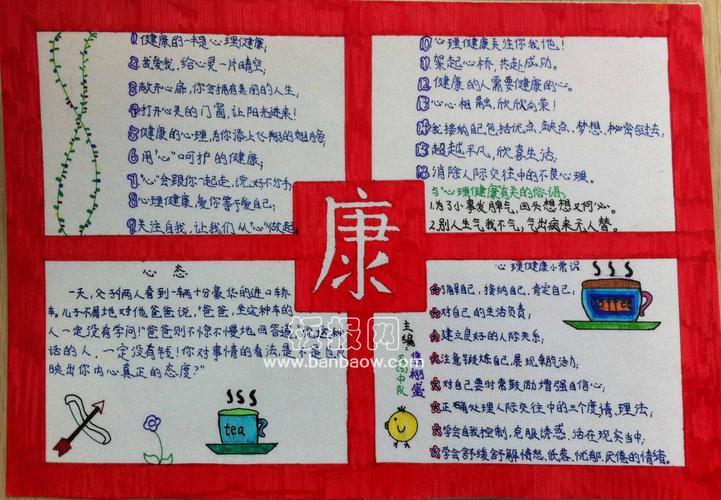 1 健康的一半是心理健康;
2 我爱我,给心灵一片晴空;
3 敞开心扉,你会拥有美丽的人生;
4 打开心灵的门窗,让阳光进来!
5 健康的心理,为你添上飞翔的翅膀;
6 用“心”呵护的健康;
7 “心”会跟你一起走,说好不分手;
8 心理健康,爱你等于爱自己;
9 关注自我,让我们从“心”做起
10 心理健康关注你我他!
11 架起心桥,共赴成功。
12 健康的人需要健康的心。
13 心心相融,欣欣向荣!
14 我接纳自己包括优点、缺点、梦想、秘密和过去;
15 超越平凡,欣喜生活;
16 消除人际交往中的不良心理。
与“心理健康”有关的俗语:
1.为了小事发脾气,回头想想又何必。
2.别人生气我不气,气出病来无人替。
康
心 态
一天,父子俩人看到一辆十分豪华的进口轿
车。儿子不屑地对他爸爸说,“爸爸,坐这种车的
人一定没有学问!”爸爸则不惊不慢地回答道,“说这种
话的人,一定没有钱!你对事情的看法,是不是也反
映出你内心真正的态度?”
tea
主编
中队
心理健康小常识
了解自己,接纳自己,肯定自己;
对自己的生活负责;
建立良好的人际关系;
注意锻炼自己,展现朝气活力;
对自己要时常鼓励增强自信心;
正确处理人际交往中的三个度(情、理、法);
学会自我控制,克服诱惑,活在现实当中;
学会舒缓舒解愤怒、低落、忧郁、厌倦的情绪。
coffee
板报网
www.banbaow.com